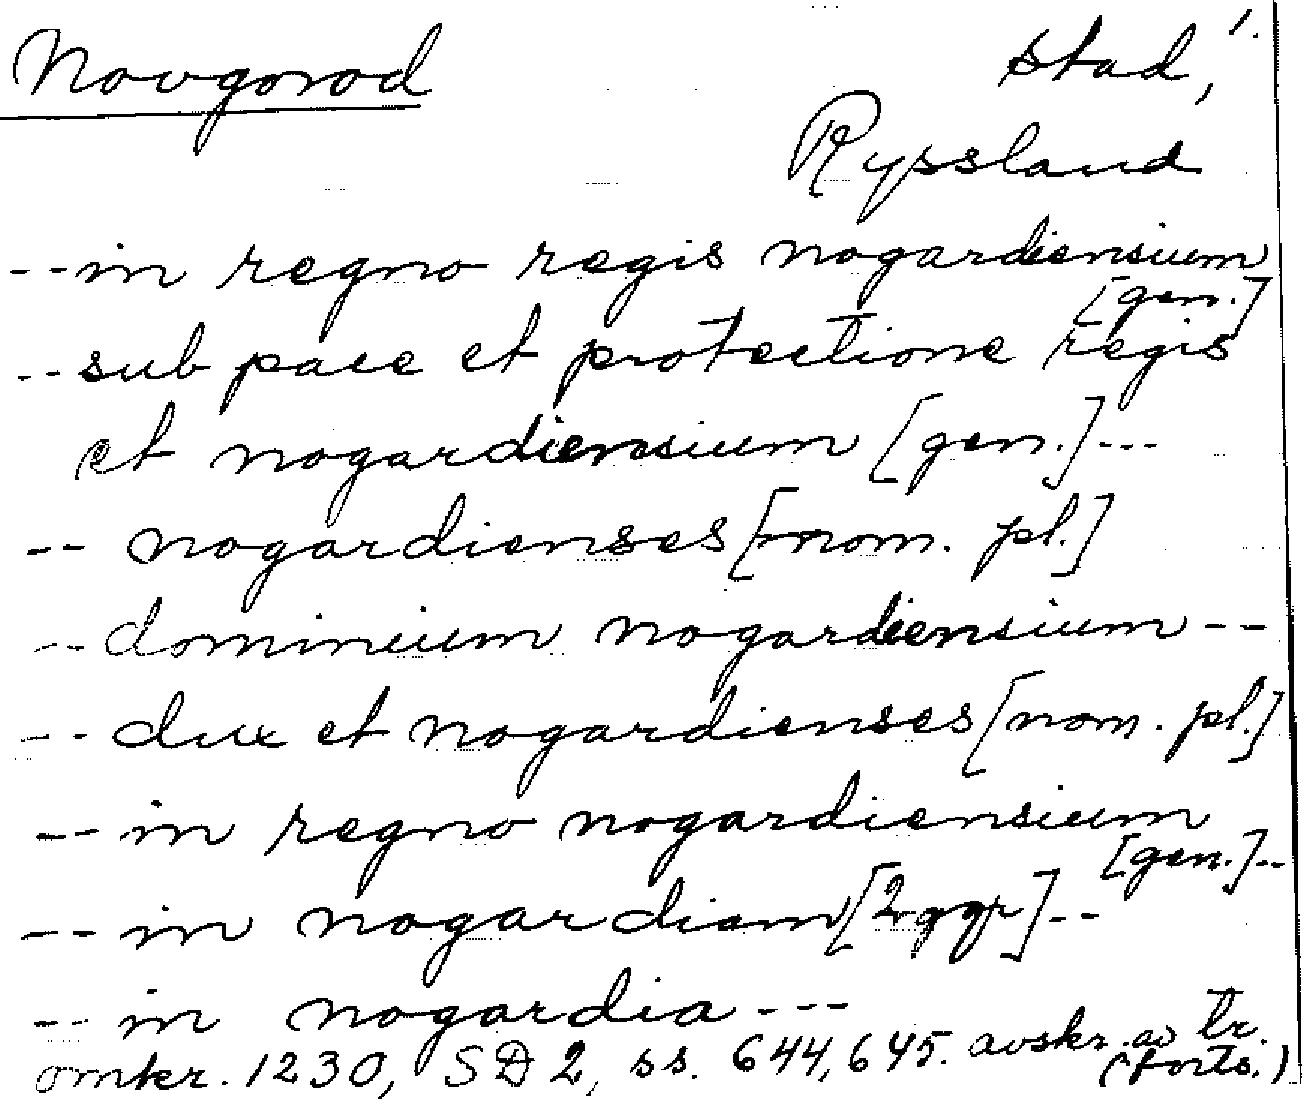 Novgorod stad, 1.
Ryssland
--in regno regis nogardiensium
[gen.]
--sub pace et protectione regis
et nogardiensium [gen.]---
-- nogardienses [nom. pl.]
--dominium nogardiensium--
--dux et nogardienses [nom. pl.]
--in regno nogardiensium
[gen.]--
--in nogardiam [2 ggr]--
--in nogardia---
omkr. 1230, SD 2, ss. 644, 645. avskr. av tr.
(forts.)